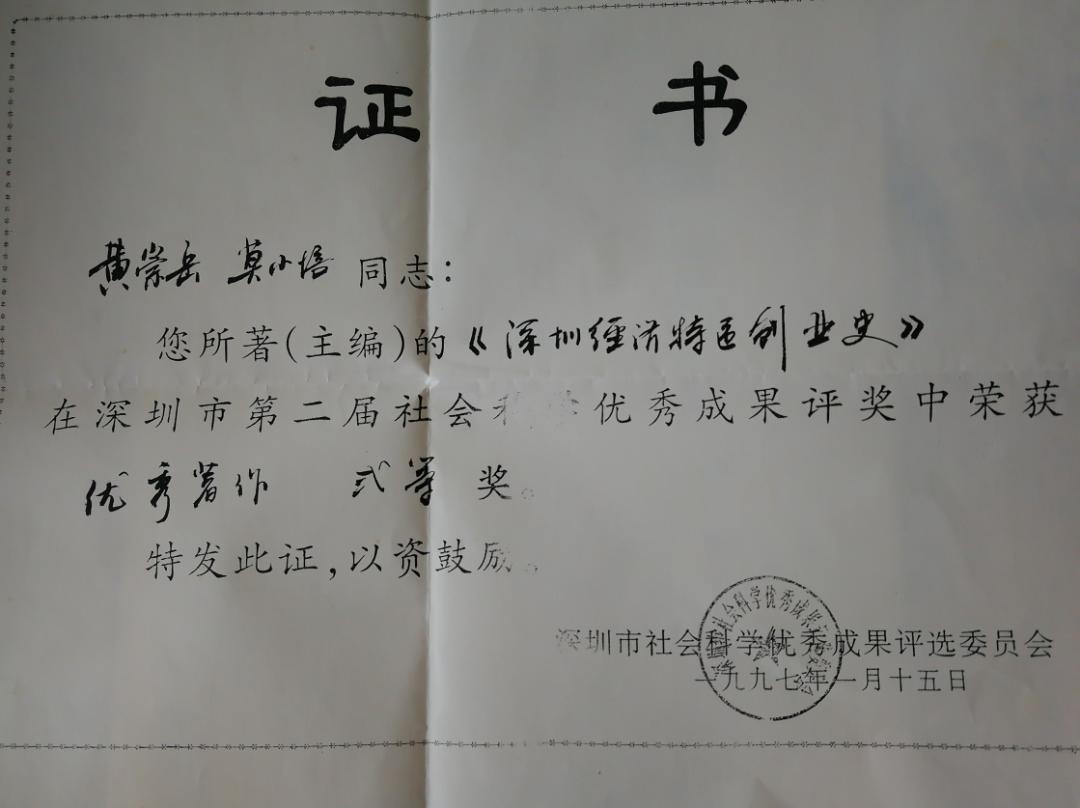 证 书
黄崇岳 莫小培 同志：
您所著（主编）的《深圳经济特区创业史》
在深圳市第二届社会科学优秀成果评奖中荣获
优秀著作 弍等奖。
特发此证，以资鼓励。
深圳市社会科学优秀成果评选委员会
一九九七年一月十五日